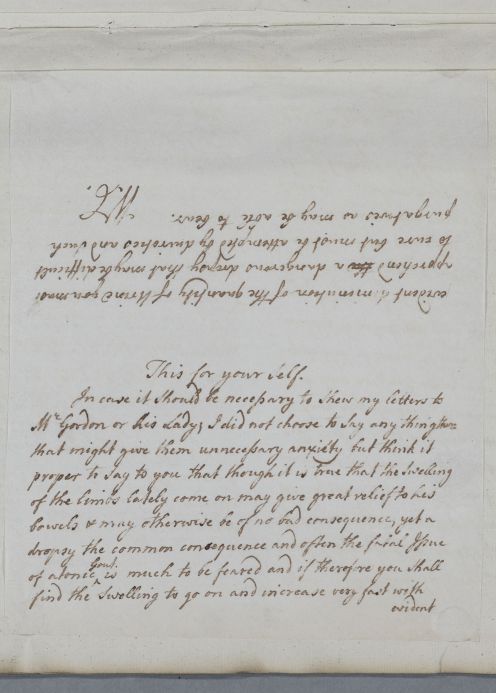 This for your self.
In case it should be necessary to shew my letters to
Mr Gordon or his Lady; I did not choose to say any thing
that might give them unnecessary anxiety but think it
proper to say to you that though it is true that the swelling
of the limbs lately come on may give great relief to his
bowels & may otherwise be of no bad consequence, yet a
dropsy the common consequence and often the fatal Issue
of atonic Gout is much to be feared and if therefore you shall
find the swelling to go on and increase very fast with
evident
evident diminution of the quantity of Urine you must
apprehend a dangerous dropsy that may be difficult
to cure but must be attempted by diuretics and such
purgatives as may be able to bear. W.C.